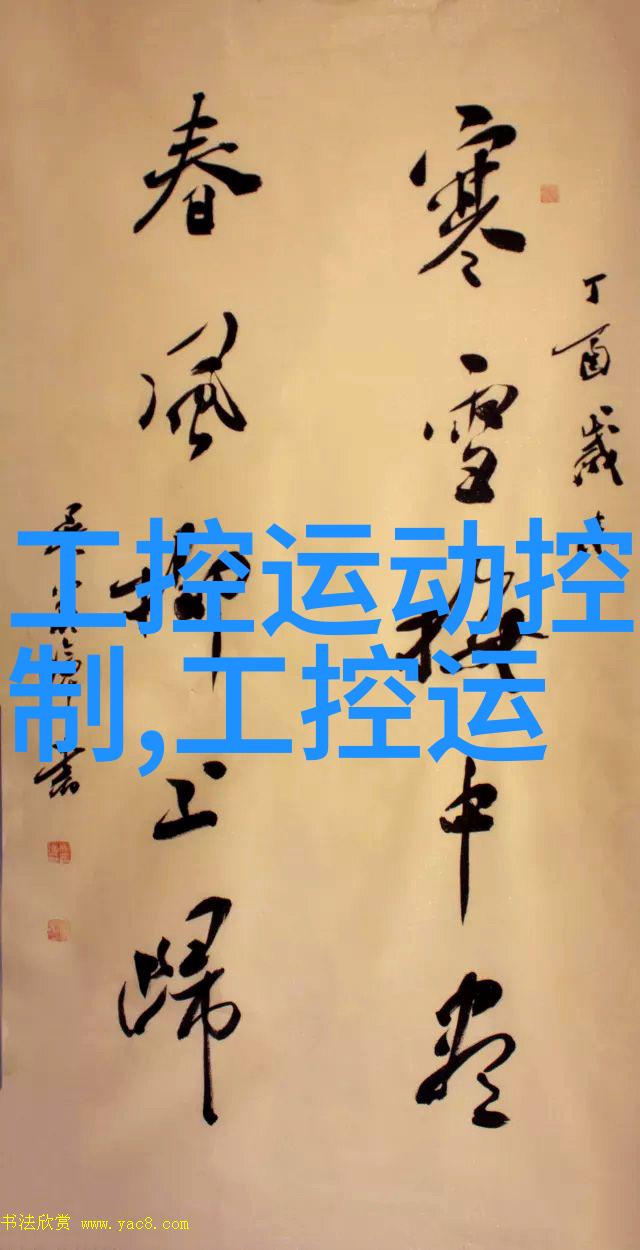 丁酉岁
寒雪梅中尽
春风柳上归
工控运动控
制,工控运
书法欣赏 www.yac8.com